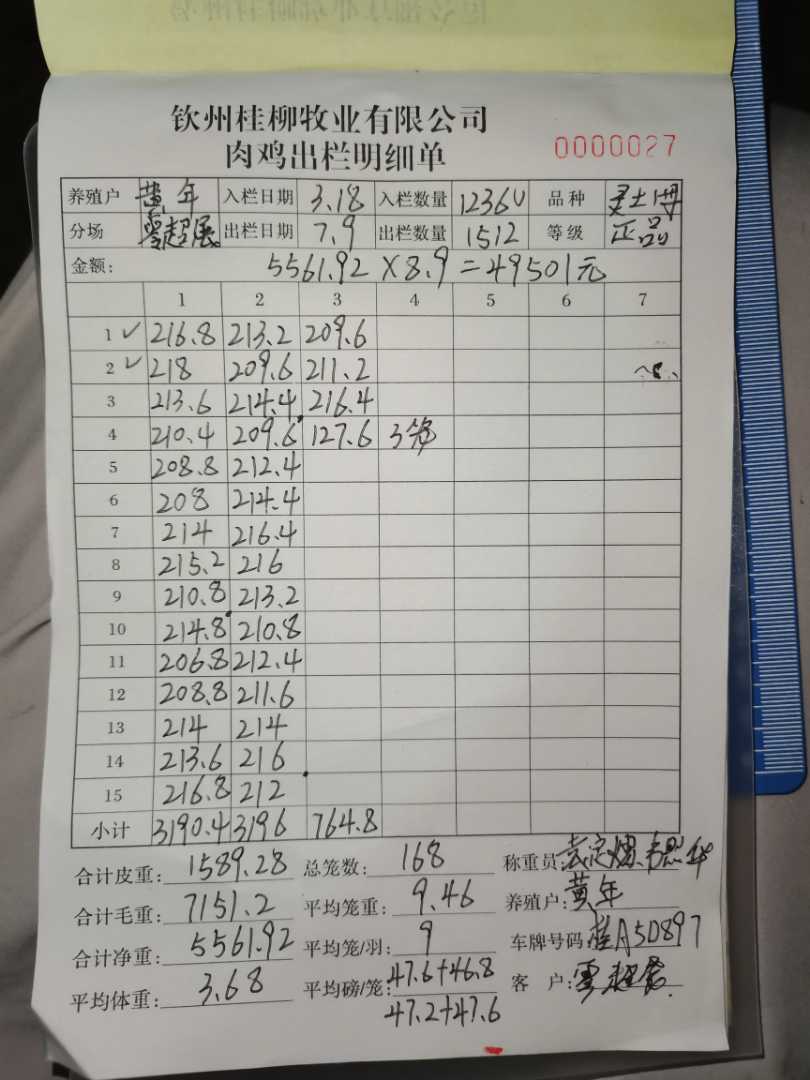 钦州桂柳牧业有限公司
肉鸡出栏明细单
0000027
养殖户 黄年 入栏日期 3.18 入栏数量 12360 品种
分场 覃超展 出栏日期 7.9 出栏数量 1512 等级 正品
金额: 5561.92×8.9=49501元
1 2 3 4 5 6 7
1 ✓ 216.8 213.2 209.6
2 ✓ 218 209.6 211.2
3 213.6 214.4 216.4
4 210.4 209.6 127.6 3笼
5 208.8 212.4
6 208 214.4
7 214 216.4
8 215.2 216
9 210.8 213.2
10 214.8 210.8
11 206.8 212.4
12 208.8 211.6
13 214 214
14 213.6 216
15 216.8 212
小计 3190.4 3196 764.8
合计皮重: 1589.28 总笼数: 168 称重员:
合计毛重: 7151.2 平均笼重: 9.46 养殖户: 黄年
合计净重: 5561.92 平均笼/羽: 9 车牌号码: 桂A5D897
平均体重: 3.68 平均磅/笼: 47.6+46.8 客户:
47.2+47.6